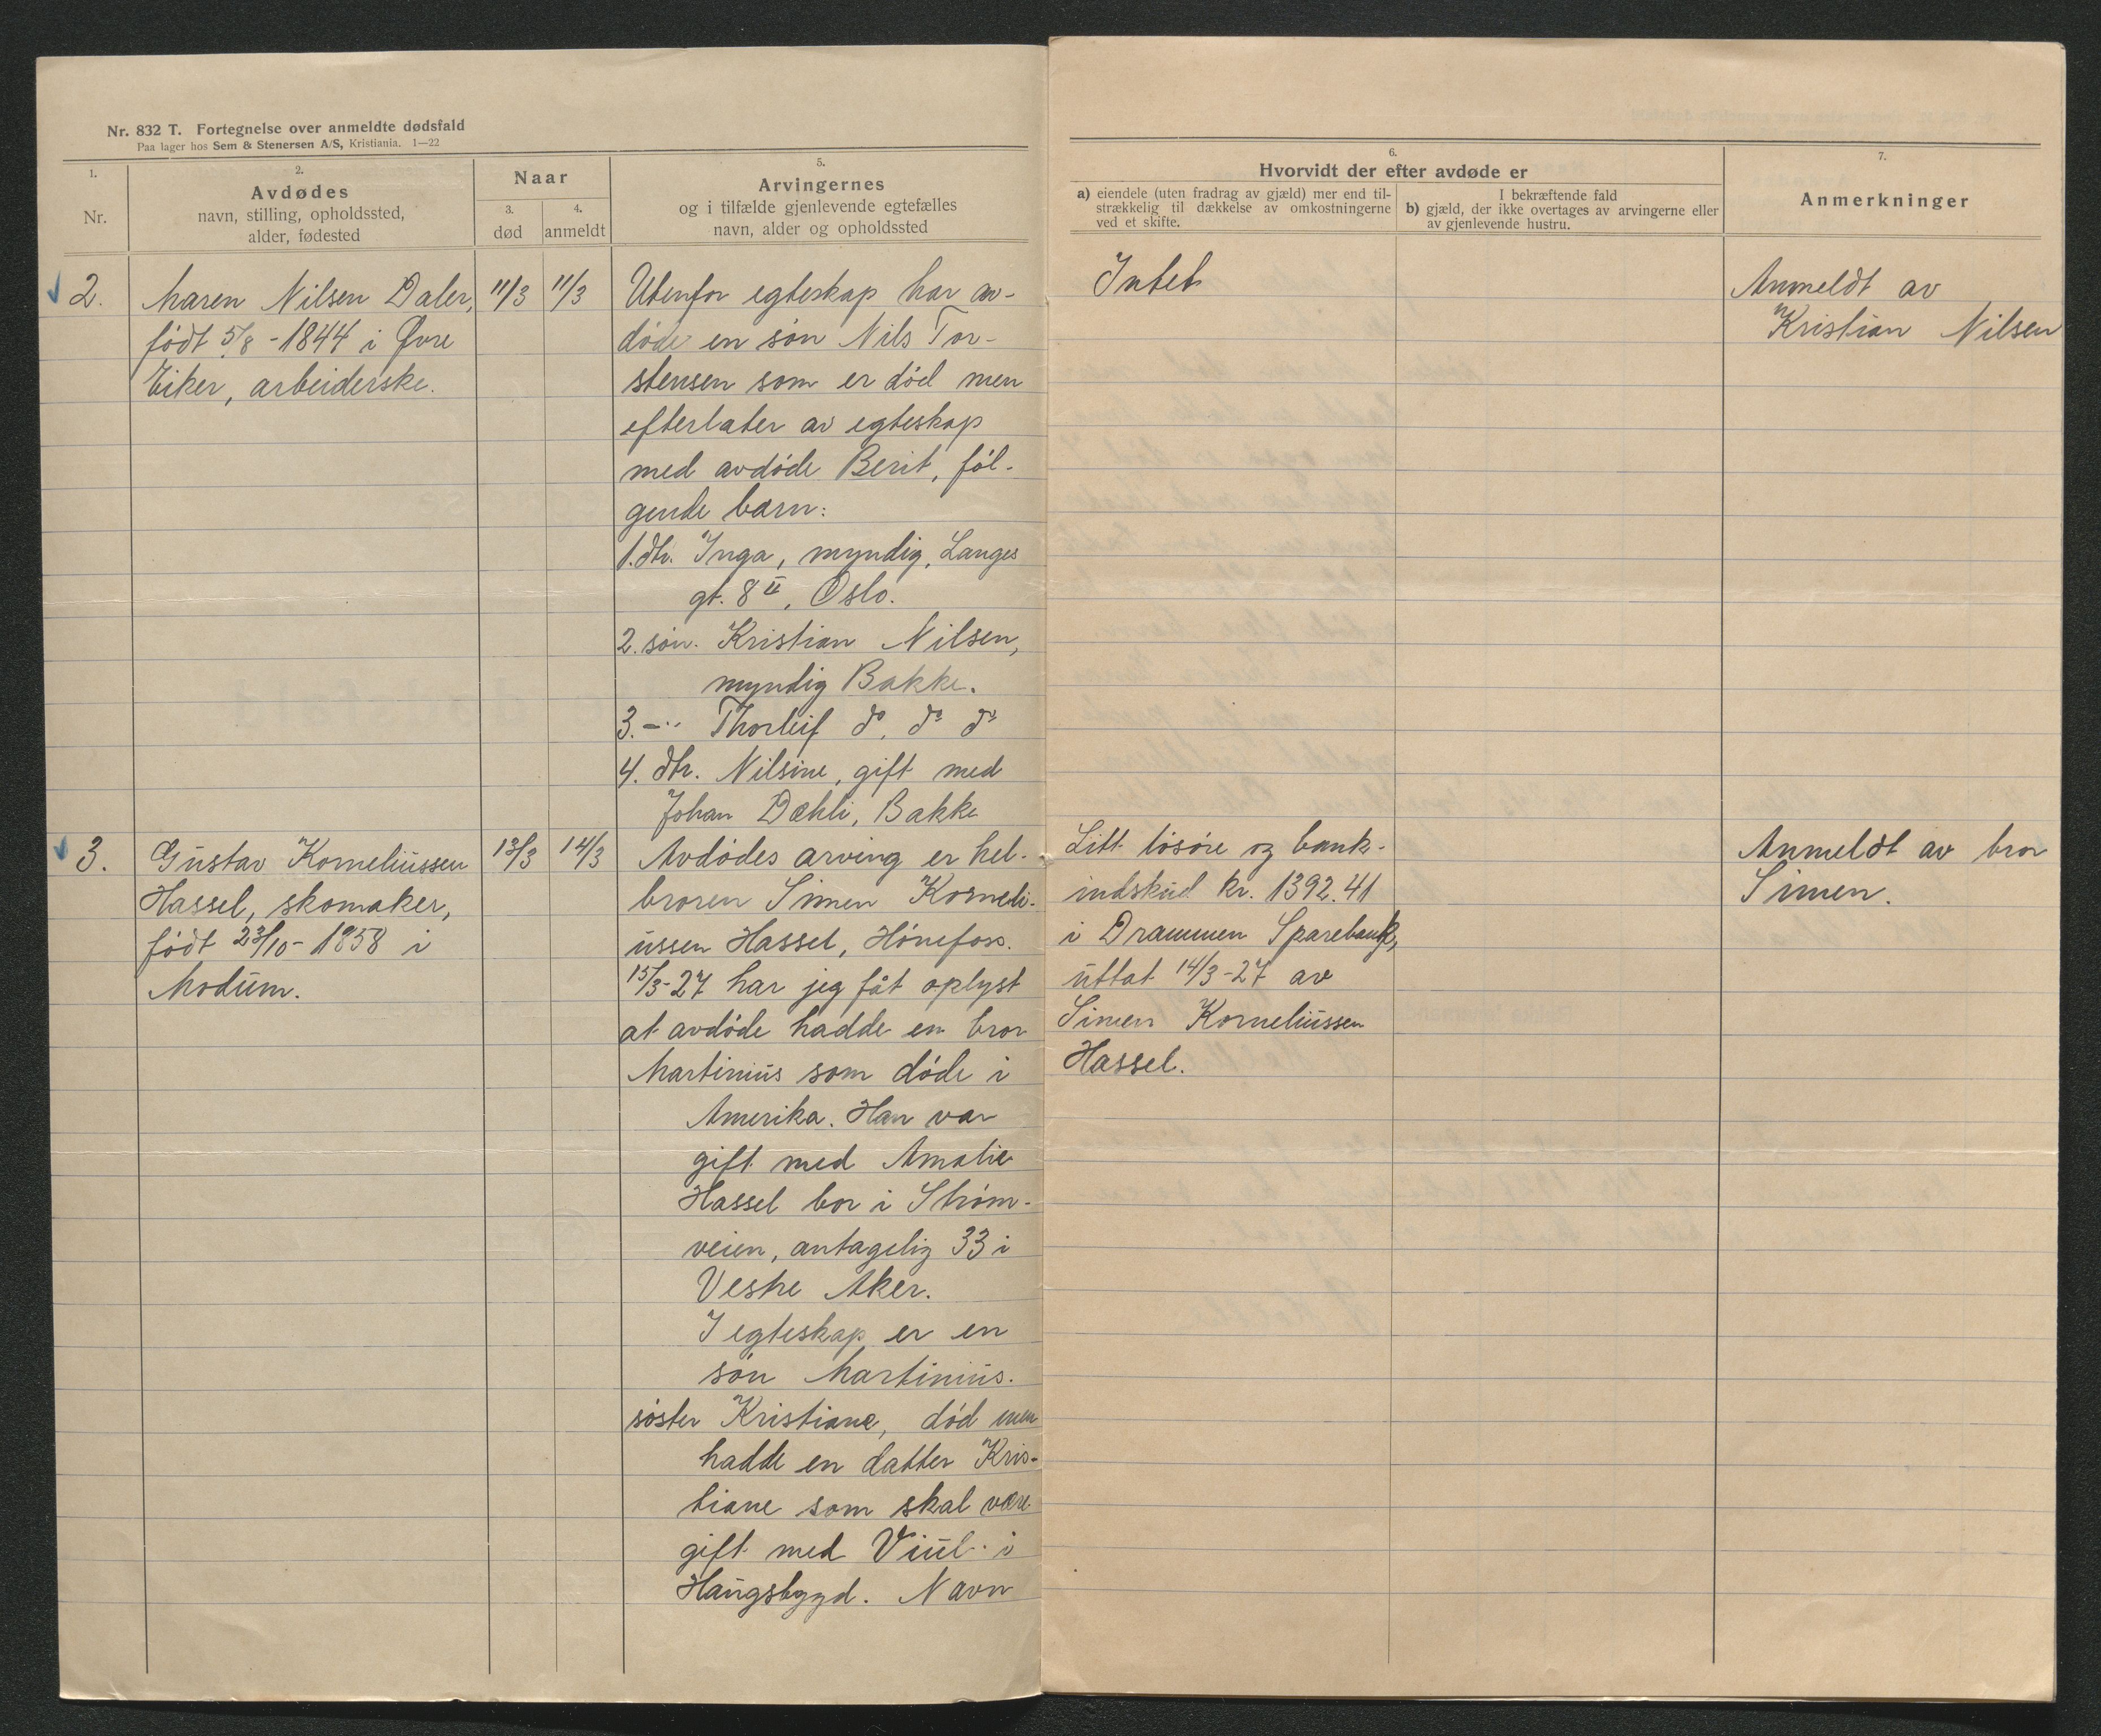 Nr. 832 T. Fortegnelse over anmeldte dødsfald
Paa lager hos Sem & Stenersen A/S, Kristiania. 1—22
1.
Nr.
2.
Avdødes
navn, stilling, opholdssted,
alder, fødested
Naar
3.
død
4.
anmeldt
5.
Arvingernes
og i tilfælde gjenlevende egtefælles
navn, alder og opholdssted
6.
Hvorvidt der efter avdøde er
a) eiendele (uten fradrag av gjæld) mer end til-
strækkelig til dækkelse av omkostningerne
ved et skifte.
I bekræftende fald
b) gjæld, der ikke overtages av arvingerne eller
av gjenlevende hustru.
7.
Anmerkninger
2.
Maren Nilsen Daler,
født 5/8 - 1844 i Øvre
Eiker, arbeiderske.
11/3
11/3
Utenfor egteskap har av-
døde en søn Nils Tor-
stensen som er død men
efterlater av egteskap
med avdøde Berit, føl-
gende barn:
1. dtr. Inga, myndig, Langes
gt. 8 II, Oslo.
2. søn. Kristian Nilsen,
myndig Bakke.
3. -" Thorleif do, do do
4. dtr. Nilsine, gift med
Johan Dæhli, Bakke
Intet
Anmeldt av
Kristian Nilsen
3.
Gustav Korneliussen
Hassel, skomaker,
født 23/10 - 1858 i
Modum.
13/3
14/3
Avdødes arving er hel-
broren Simen Korneli-
ussen Hassel, Hønefoss.
15/3-27 har jeg fåt oplyst
at avdøde hadde en bror
Martinius som døde i
Amerika. Han var
gift med Amalie
Hassel bor i Strøm-
veien, antagelig 33 i
Vestre Aker.
I egteskap er en
søn Martinius.
søster Kristiane, død men
hadde en datter Kris-
tiane som skal være
gift med Viul i
Haugsbygd. Navn
Litt løsøre og bank-
indskud kr. 1392.41
i Drammen Sparebank,
uttat 14/3-27 av
Simen Korneliussen
Hassel.
Anmeldt av bror
Simen.